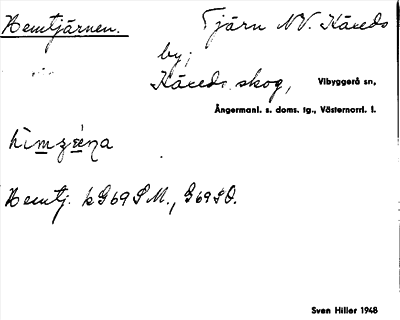 Hemtjärnen. Tjärn NV. Käxeds
by;
Käxeds skog, Vibyggerå sn,
Ångermanl. s. doms. tg., Västernorrl. l.
Hemtj. kG69SM., G69SO.
Sven Hiller 1948